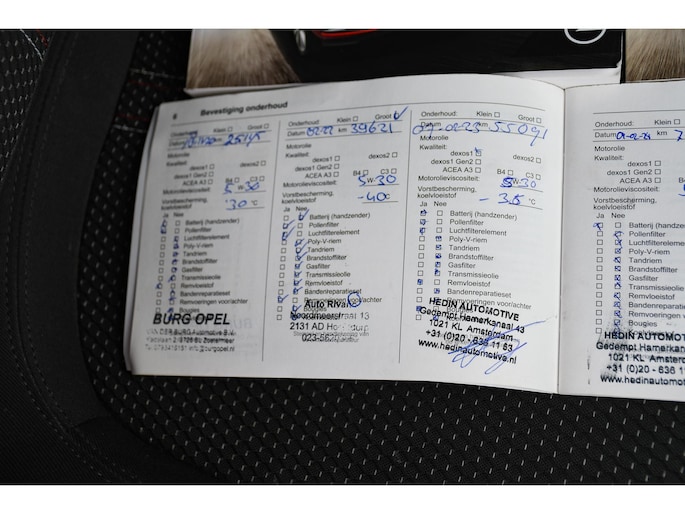 6 Bevestiging onderhoud
Onderhoud: Klein ☐ Groot ☐
Datum km 25145
Motorolie
Kwaliteit:
dexos1 ☐ dexos2 ☐
dexos1 Gen2 ☐
ACEA A3 ☐ B4 ☐ C3 ☐
Motorolieviscositeit:
5 W 30
Vorstbescherming,
koelvloeistof
30 °C
Ja Nee
Batterij (handzender)
Pollenfilter
Luchtfilterelement
Poly-V-riem
Tandriem
Brandstoffilter
Gasfilter
Transmissieolie
Remvloeistof
Bandenreparatieset
Remvoeringen voor/achter
Bougies
BURG OPEL
Onderhoud: Klein ☐ Groot ☐ ✓
Datum 02-22 km 39631
Motorolie
Kwaliteit:
dexos1 ☐ dexos2 ☐
dexos1 Gen2 ☐
ACEA A3 ☐ B4 ☐ C3 ☐
Motorolieviscositeit:
5 W-30
Vorstbescherming,
koelvloeistof
-40 °C
Ja Nee
Batterij (handzender)
Pollenfilter
Luchtfilterelement
Poly-V-riem
Tandriem
Brandstoffilter
Gasfilter
Transmissieolie
Remvloeistof
Bandenreparatieset
Remvoeringen voor/achter
Bougies
2131 AD
Onderhoud: Klein ☐ Groot ☐
Datum 07-02-23 km 55091
Motorolie
Kwaliteit:
dexos1 dexos2 ☐
dexos1 Gen2 ☐
ACEA A3 ☐ B4 ☐ C3 ☐
Motorolieviscositeit:
5 W-30
Vorstbescherming,
koelvloeistof
- 36 °C
Ja Nee
Batterij (handzender)
Pollenfilter
Luchtfilterelement
Poly-V-riem
Tandriem
Brandstoffilter
Gasfilter
Transmissieolie
Remvloeistof
Bandenreparatieset
Remvoeringen voor/achter
HEDIN AUTOMOTIVE
Gedempt Hamerkanaal 43
1021 KL Amsterdam
+31 (0)20 - 636 11 53
www.hedinautomotive.nl
Onderhoud: Klein ☐
Datum
Motorolie
Kwaliteit:
dexos1 ☐
dexos1 Gen2 ☐
ACEA A3 ☐
Motorolieviscositeit:
Vorstbescherming,
koelvloeistof
Ja Nee
Batterij (handzender)
Pollenfilter
Luchtfilterelement
Poly-V-riem
Tandriem
Brandstoffilter
Gasfilter
Transmissieolie
Remvloeistof
Bandenreparatieset
Remvoeringen
Bougies
HEDIN AUTOMOT
Gedempt Hamerkan
1021 KL Amster
+31 (0)20 - 636 11
www.hedinautomot